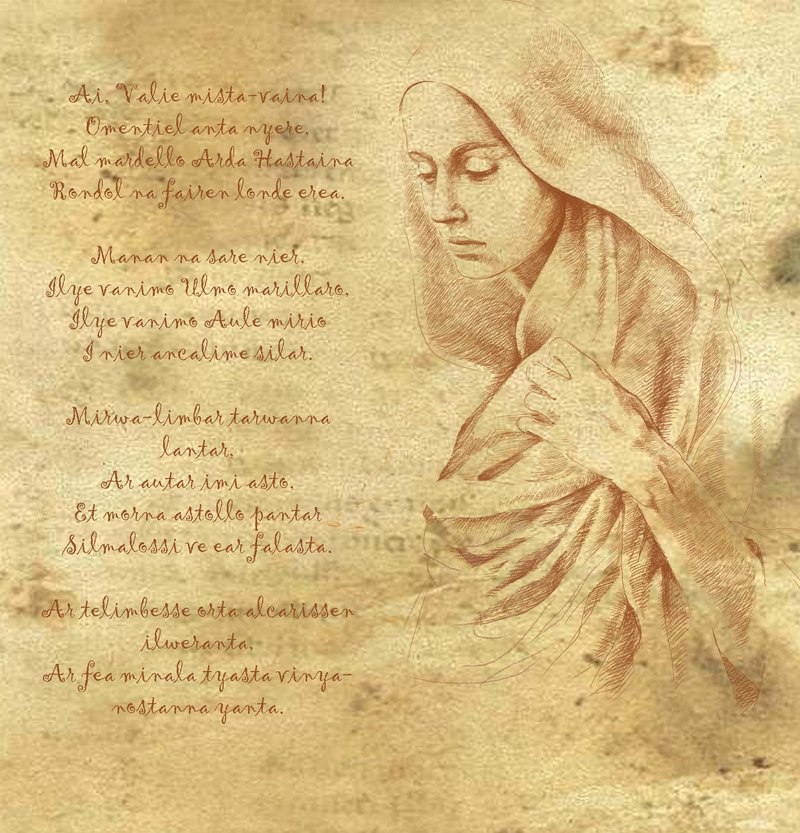 Ai, Valie mista-vaina!
Omentiel anta nyere,
Mal mardello Arda Hastaina
Rondol na fairen londe erea.
Manan na sare nier,
Ilye vanimo Ulmo marillaro,
Ilye vanimo Aule mirio
I nier ancalime silar.
Mirwa-limbar tarwanna
lantar,
Ar autar imi asto,
Et morna astollo pantar
Silmalossi ve ear falasta.
Ar telimbesse orta alcarissen
ilweranta,
Ar fea minala tyasta vinya-
nostanna yanta.